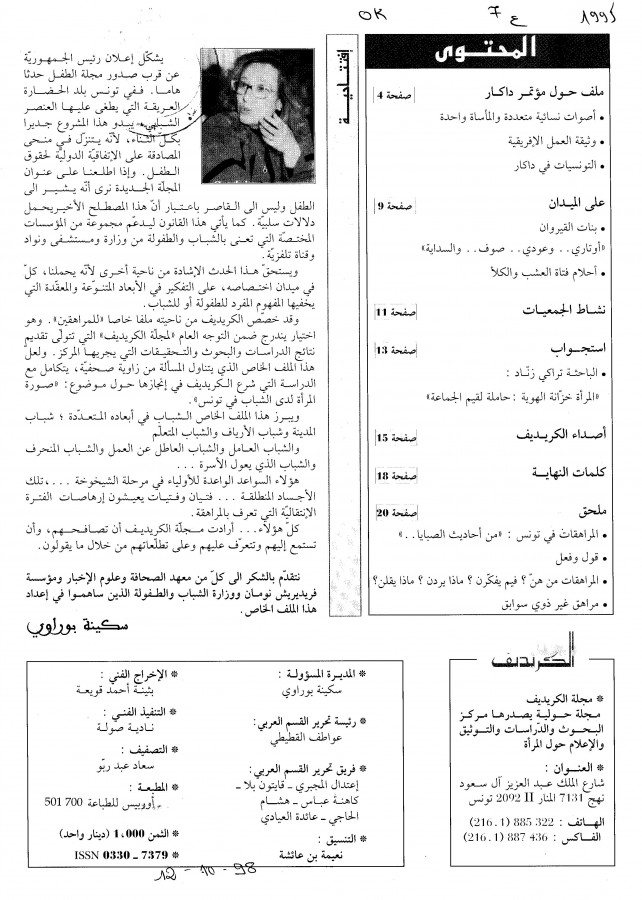 OK
7 ع
1995
المحتوى
ملف حول مؤتمر داكار صفحة 4
• أصوات نسائية متعددة والمأساة واحدة
• وثيقة العمل الإفريقية
• التونسيات في داكار
على الميدان صفحة 9
• بنات القيروان
«أوتاري.. وعودي.. صوف.. والسداية»
• أحلام فتاة العشب والكلأ
نشاط الجمعيات صفحة 11
استجواب صفحة 13
• الباحثة تراكي زنّاد :
«المرأة خزّانة الهوية : حاملة لقيم الجماعة»
أصداء الكريديف صفحة 15
كلمات النهاية صفحة 18
ملحق صفحة 20
• المراهقات في تونس : «من أحاديث الصبايا..»
• قول وفعل
• المراهقات من هنّ؟ فيم يفكّرن؟ ماذا يردن؟ ماذا يقلن؟
• مراهق غير ذوي سوابق
إفتتاحية
يشكّل إعلان رئيس الجمهوريّة
عن قرب صدور مجلة الطفل حدثا
هاما. ففي تونس بلد الحضارة
العريقة التي يطغى عليها العنصر
الشبابي يبدو هذا المشروع جديرا
بكلّ الثناء، لأنّه يتنزّل في منحى
المصادقة على الإتفاقيّة الدوليّة لحقوق
الطفل. وإذا اطلعنا على عنوان
المجلّة الجديدة نرى أنّه يشير الى
الطفل وليس الى القاصر باعتبار أنّ هذا المصطلح الأخير يحمل
دلالات سلبيّة. كما يأتي هذا القانون ليدعّم مجموعة من المؤسسات
المختصّة التي تعنى بالشباب والطفولة من وزارة ومستشفى ونواد
وقناة تلفزيّة.
ويستحقّ هذا الحدث الإشادة من ناحية أخرى لأنّه يحملنا، كلّ
في ميدان اختصاصه، على التفكير في الأبعاد المتنوّعة والمعقّدة التي
يخفيها المفهوم المفرد للطفولة أو للشباب.
وقد خصّص الكريديف من ناحيته ملفا خاصا «للمراهقين». وهو
اختيار يندرج ضمن التوجه العام «لمجلّة الكريديف» التي تتولّى تقديم
نتائج الدراسات والبحوث والتحقيقات التي يجريها المركز. ولعلّ
هذا الملف الخاص الذي يتناول المسألة من زاوية صحفيّة، يتكامل مع
الدراسة التي شرع الكريديف في إنجازها حول موضوع: «صورة
المرأة لدى الشباب في تونس».
ويبرز هذا الملف الخاص الشباب في أبعاده المتعدّدة ؛ شباب
المدينة وشباب الأرياف والشباب المتعلّم
والشباب العامل والشباب العاطل عن العمل والشباب المنحرف
والشباب الذي يعول الأسرة ...
هؤلاء السواعد الواعدة للأولياء في مرحلة الشيخوخة ...، تلك
الأجساد المنطلقة... فتيان وفتيات يعيشون إرهاصات الفترة
الإنتقاليّة التي تعرف بالمراهقة.
كلّ هؤلاء... أرادت مجلّة الكريديف أن تصافحهم، وأن
تستمع إليهم وتتعرّف عليهم وعلى تطلّعاتهم من خلال ما يقولون.
نتقدّم بالشكر الى كلّ من معهد الصحافة وعلوم الإخبار ومؤسسة
فريديريش نومان ووزارة الشباب والطفولة الذين ساهموا في إعداد
هذا الملف الخاص.
سكينة بوراوي
الكريديف
* مجلة الكريديف
مجلة حولية يصدرها مركز
البحوث والدّراسات والتوثيق
والإعلام حول المرأة
* العنوان :
شارع الملك عبد العزيز آل سعود
نهج 7131 المنار II 2092 تونس
* الهاتف : 322 885 (1.216)
* الفاكس : 436 887 (1.216)
* المديرة المسؤولة :
سكينة بوراوي
* رئيسة تحرير القسم العربي:
عواطف القطيطي
* فريق تحرير القسم العربي:
إعتدال المجبري ـ قايتون بلا ـ
كاهنة عباس ـ هشام
الحاجي ـ عائدة العيادي
* التنسيق :
نعيمة بن عائشة
* الإخراج الفني :
بثينة أحمد قويعة
* التنفيذ الفني :
نادية صولة
* التصفيف :
سعاد عبد ربّو
* المطبعة :
أوربيس للطباعة 700 501
* الثمن 1،000 (دينار واحد)
* ISSN 0330 ـ 7379
12-10-98